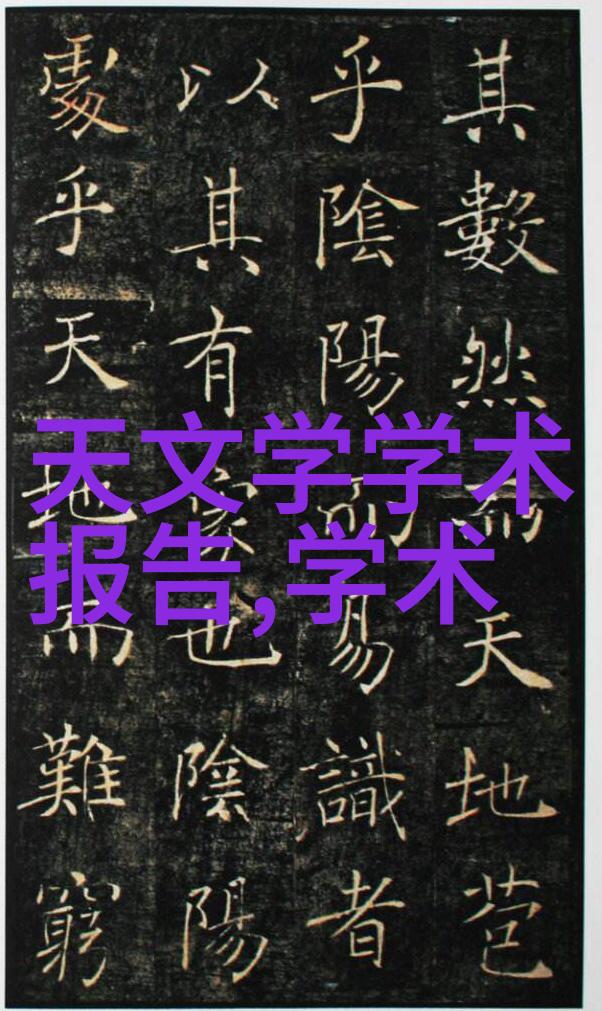 其數然而天地苞
乎陰陽而易識者
以其有象也陰陽
處乎天地而難窮
天文学学术
报告,学术